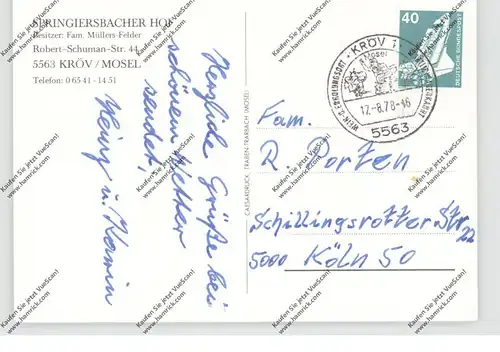 SPRINGIERSBACHER HOF
Besitzer: Fam. Müllers-Felder
Robert-Schuman-Str. 44
5563 KRÖV / MOSEL
Telefon: 0 65 41 - 14 51
Herzliche Grüße bei
schönem Wetter
sendet
Heinz u. Karin
CAESARDRUCK, TRABEN-TRARBACH (MOSEL)
40
DEUTSCHE BUNDESPOST
KRÖV 1
Mosel
12.-8.78-16
5563
Fam.
R. Porten
Schillingsrotter Str
22
5000 Köln 50
Kaufen Sie jetzt VueScan!
www.hamrick.com